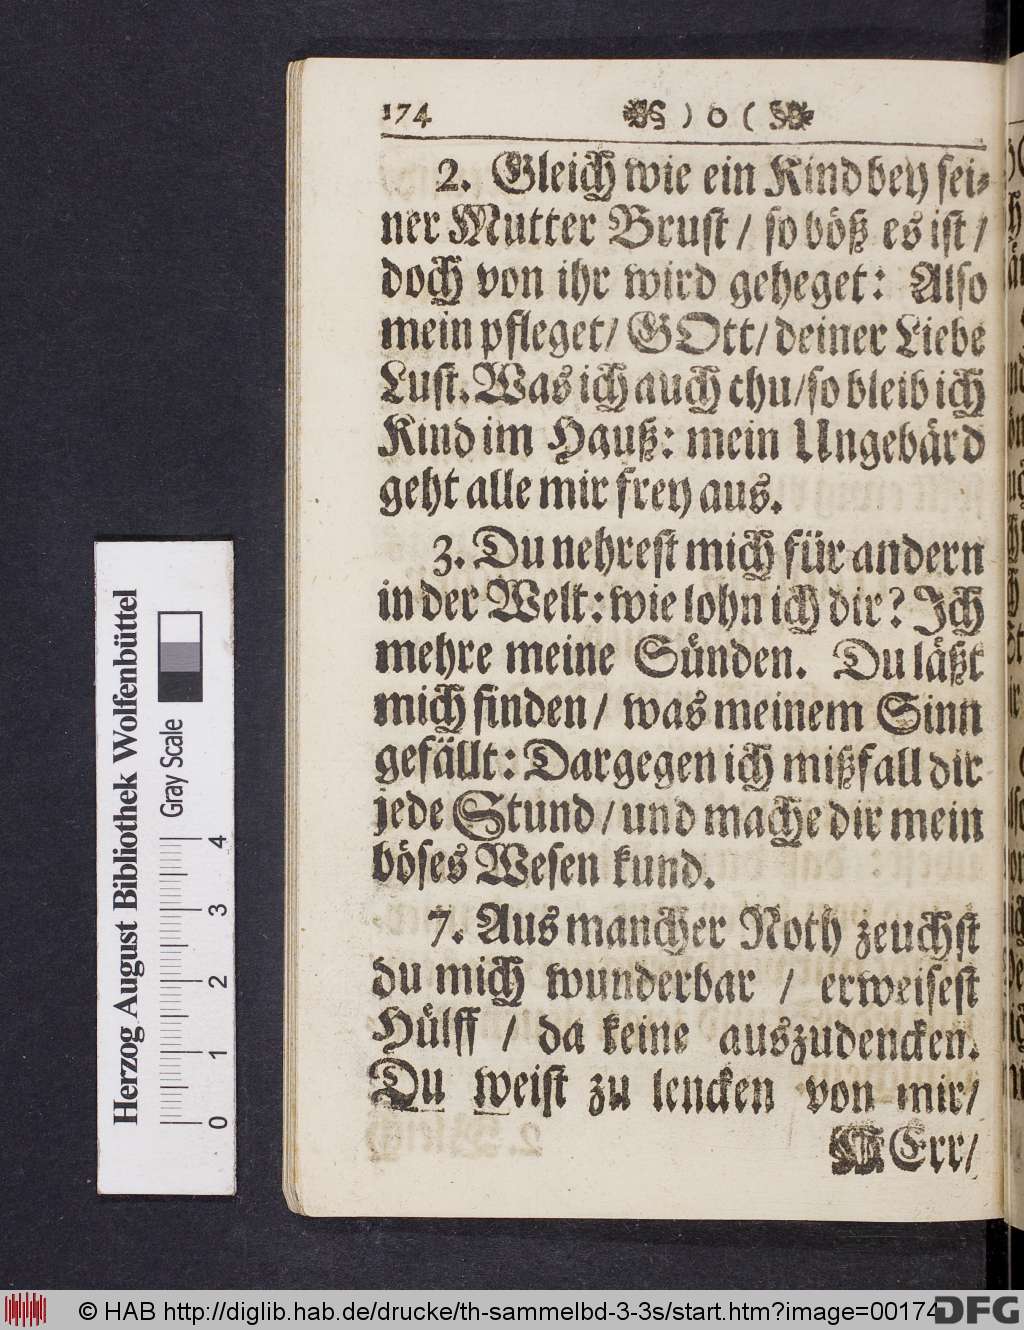 174 ) o (
2. Gleich wie ein Kind bey sei-
ner Mutter Brust / so böß es ist /
doch von ihr wird geheget: Also
mein pfleget / GOtt / deiner Liebe
Lust. Was ich auch thu / so bleib ich
Kind im Hauß: mein Ungebärd
geht alle mir frey aus.
3. Du nehrest mich für andern
in der Welt: wie lohn ich dir? Ich
mehre meine Sünden. Du läßt
mich finden / was meinem Sinn
gefällt: Dargegen ich mißfall dir
jede Stund / und mache dir mein
böses Wesen kund.
7. Aus mancher Noth zeuchst
du mich wunderbar / erweisest
Hülff / da keine auszudencken.
Du weist zu lencken von mir /
HErr /
Herzog August Bibliothek Wolfenbüttel
Gray Scale
0 1 2 3 4
© HAB http://diglib.hab.de/drucke/th-sammelbd-3-3s/start.htm?image=00174
DFG